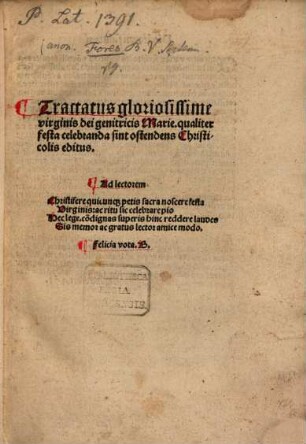 P. Lat. 1391.
(anon. Fores B. V.
19.
¶ Tractatus gloriosissime
virginis dei genitricis Marie. qualiter
festa celebranda sint ostendens Christi-
colis editus.
¶ Ad lectorem
Christifere quicunqꝫ petis sacra noscere festa
Virginis: ac ritu sic celebrare pio
Hec lege. cōdignas superis hinc reddere laudes
Sis memor ac gratus lector amice modo.
¶ felicia vota. B.
BIBLIOTHECA
REGIA
MONACENSIS.